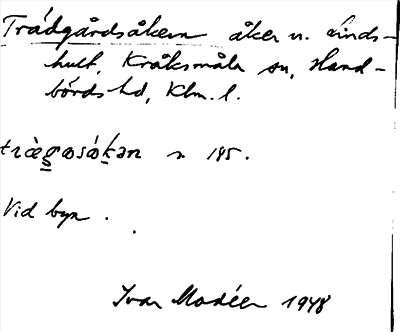 Trädgårdsåkern åker n. Linds-
hult, Kråksmåla sn, Hand-
börds hd, Klm. l.
185.
Vid byn.
Ivar Modéer 1948